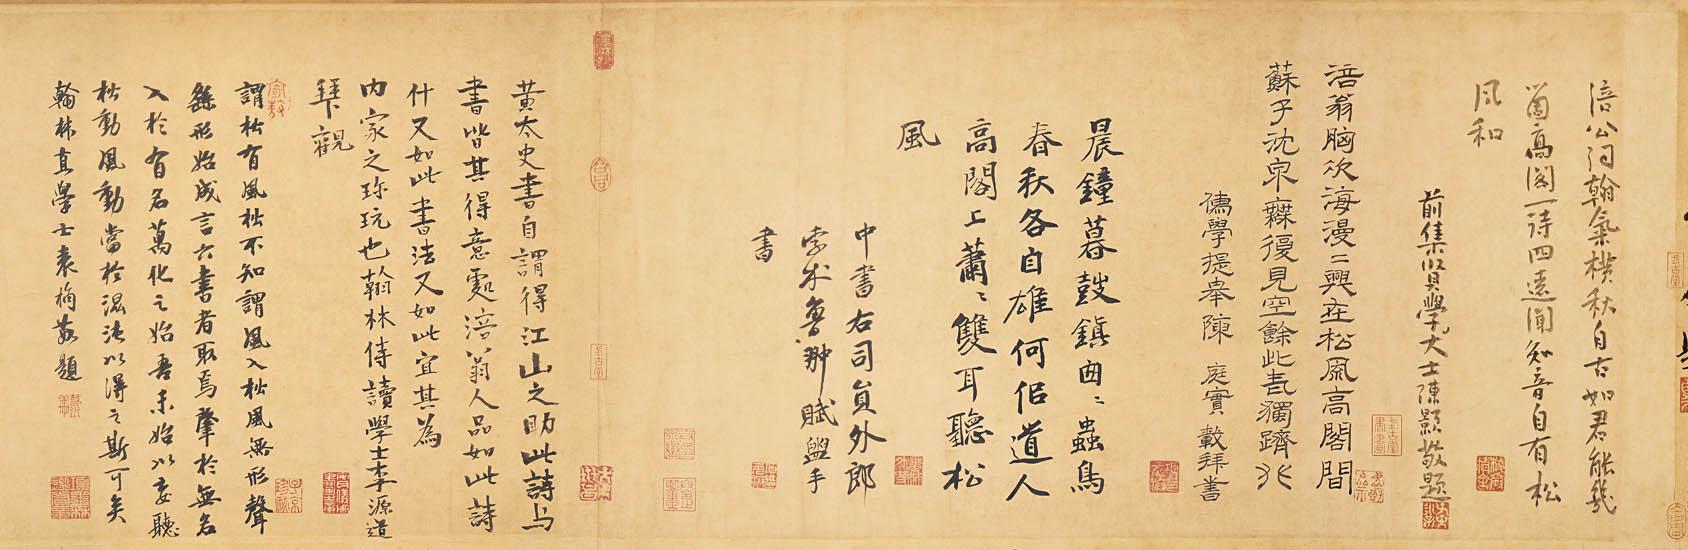 涪公詞翰氣橫秋自古如君能幾
箇高閣一詩四遠聞知音自有松
風和
前集賢學士陳顥敬題
涪翁胸次海漫〻興在松風高閣間
蘇子沈泉寐復見空餘此卷獨躋
儒學提舉陳庭實載拜書
晨鐘暮鼓鎮〻蟲鳥
春秋各自雄何佀道人
高閣上蕭〻雙耳聽松
風
中書右司員外郎
孛朮魯翀賦盥手
書
黃太史書自謂得江山之助此詩与
書皆其得意處涪翁人品如此詩
什又如此書法又如此宜其為
內家之珍玩也翰林侍讀學士李源道
拜觀
謂松有風松不知謂風入松風無形聲
繇形始成言六書者取焉肇於無名
入於有名萬化之始吾未始以妄聽
松動風動當於混沌以得之斯可矣
翰林直學士袁桷敬題